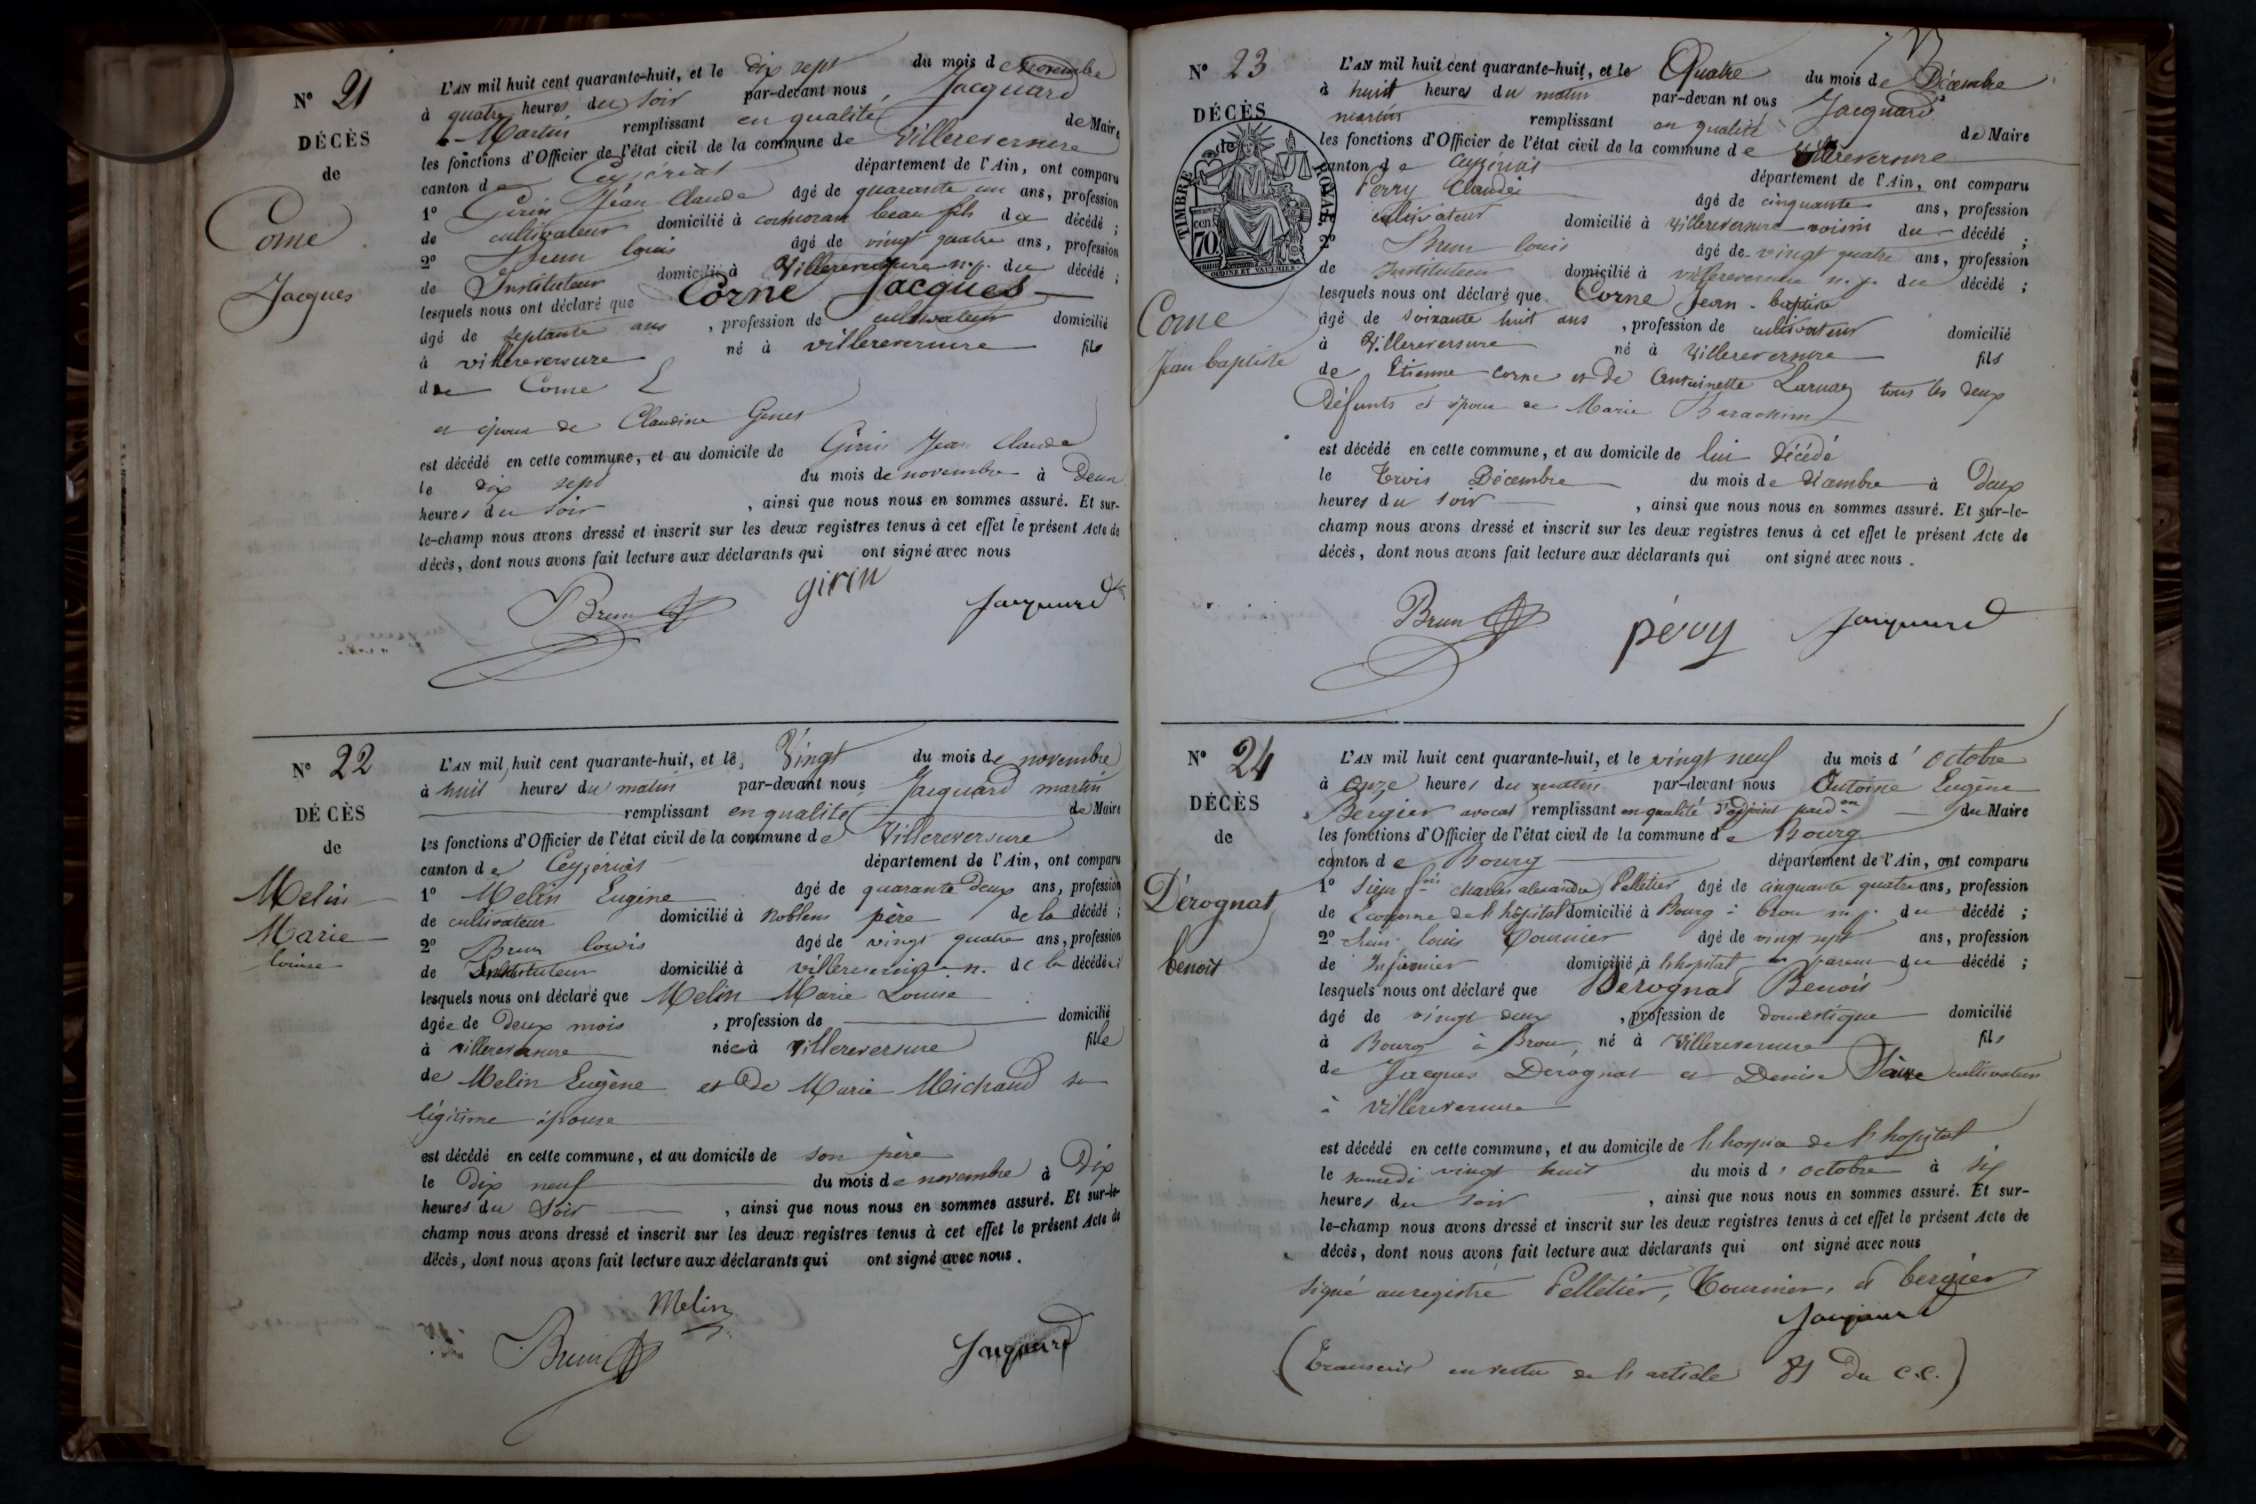 N° 21
DÉCÈS
de
Corne
Jacques
L'AN mil huit cent quarante-huit, et le dix sept du mois de novembre
à quatre heures du soir par-devant nous Jacquard
Martin remplissant en qualité de Maire
les fonctions d'Officier de l'état civil de la commune de Villereversure
canton de Ceyzériat département de l'Ain, ont comparu
1° Girin Jean Claude âgé de quarante un ans, profession
de cultivateur domicilié à cormoran beau fils du décédé ;
2° Brun louis âgé de vingt quatre ans, profession
de Instituteur domicilié à Villereversure n.p. du décédé ;
lesquels nous ont déclaré que Corne Jacques
âgé de septante ans , profession de cultivateur domicilié
à villereversure né à villereversure fils
de Corne
et époux de Claudine
est décédé en cette commune, et au domicile de Girin Jean Claude
le dix sept du mois de novembre à Deux
heures du soir , ainsi que nous nous en sommes assuré. Et sur-
le-champ nous avons dressé et inscrit sur les deux registres tenus à cet effet le présent Acte de
décès, dont nous avons fait lecture aux déclarants qui ont signé avec nous
Brun girin Jacquard
N° 22
DÉCÈS
de
Melin
Marie
louise
L'AN mil huit cent quarante-huit, et le Vingt du mois de novembre
à huit heures du matin par-devant nous Jacquard martin
remplissant en qualité de Maire
les fonctions d'Officier de l'état civil de la commune de Villereversure
canton de Ceyzériat département de l'Ain, ont comparu
1° Melin Eugène âgé de quarante Deux ans, profession
de cultivateur domicilié à Noblens père de la décédé ;
2° Brun louis âgé de vingt quatre ans, profession
de Instituteur domicilié à n. de la décédé ;
lesquels nous ont déclaré que Melin Marie Louise
âgée de Deux mois , profession de domicilié
à villereversure née à Villereversure fille
de Melin Eugène et De Marie Michaud sa
légitime épouse
est décédé en cette commune, et au domicile de son père
le Dix neuf du mois de novembre à Dix
heures du Soir , ainsi que nous nous en sommes assuré. Et sur-le-
champ nous avons dressé et inscrit sur les deux registres tenus à cet effet le présent Acte de
décès, dont nous avons fait lecture aux déclarants qui ont signé avec nous.
Melin
Brun Jacquard
N° 23
DÉCÈS
TIMBRE ROYAL
70
Corne
Jean baptiste
L'AN mil huit cent quarante-huit, et le Quatre du mois de Décembre
à huit heures du matin par-devan nt ous Jacquard
martin remplissant en qualité de Maire
les fonctions d'Officier de l'état civil de la commune de Villereversure
canton de Ceyzériat département de l'Ain, ont comparu
Perry Claude âgé de cinquante ans, profession
cultivateur domicilié à Villereversure voisin du décédé ;
2° Brun louis âgé de vingt quatre ans, profession
de Instituteur domicilié à villereversure n.p. du décédé ;
lesquels nous ont déclaré que Corne Jean-baptiste
âgé de soixante huit ans , profession de cultivateur domicilié
à Villereversure né à Villereversure fils
de Etienne Corne et de Antoinette tous les deux
Défunts et époux de Marie
est décédé en cette commune, et au domicile de lui Décédé
le Trois Décembre du mois de Décembre à Deux
heures du soir , ainsi que nous nous en sommes assuré. Et sur-le-
champ nous avons dressé et inscrit sur les deux registres tenus à cet effet le présent Acte de
décès, dont nous avons fait lecture aux déclarants qui ont signé avec nous.
Brun Jacquard
N° 24
DÉCÈS
de
Dérognat
benoit
L'AN mil huit cent quarante-huit, et le vingt neuf du mois d'octobre
à Onze heures du matin par-devant nous Antoine Eugène
Bergier avocat remplissant en qualité d'adjoint du Maire
les fonctions d'Officier de l'état civil de la commune de Bourg
canton de Bourg département de l'Ain, ont comparu
1° Sieur charles alexandre Pelletier âgé de cinquante quatre ans, profession
de Econome de l'hôpital domicilié à Bourg à brou n.p. du décédé ;
2° Sieur louis Tournier âgé de vingt sept ans, profession
de Infirmier domicilié à l'hopital du décédé ;
lesquels nous ont déclaré que Dérognat Benoit
âgé de vingt deux , profession de domestique domicilié
à Bourg à Brou, né à Villereversure fils
de Jacques Derognat et Denise cultivateurs
à Villereversure
est décédé en cette commune, et au domicile de l'hospice de l'hopital
le samedi vingt huit du mois d'octobre à six
heures du soir , ainsi que nous nous en sommes assuré. Et sur-
le-champ nous avons dressé et inscrit sur les deux registres tenus à cet effet le présent Acte de
décès, dont nous avons fait lecture aux déclarants qui ont signé avec nous
Signé au registre Pelletier, Tournier, et bergier
Jacquard
(Transcrit en vertu de l'article du C.C.)